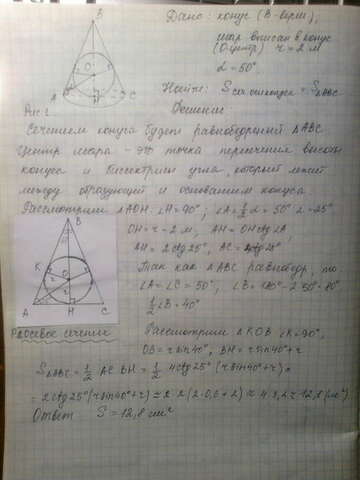 Дано: конус (В-верш),
шар вписан в конус
(О-центр) r = 2 м
α = 50°
Найти: S сеч = S△ABC
Решение
Рис 1
Сечением конуса будет равнобедренный △ABC
Центр шара - это точка пересечения высоты
конуса и биссектрисы угла, который лежит
между образующей и основанием конуса.
Рассмотрим △AOH ∠H = 90°; ∠A = 1/2 α = 50° : 2 = 25°
OH = r = 2 м, AH = OH ctg∠A
AH = 2ctg 25°, AC = 4ctg 25°
Так как △ABC равнобедр, то
∠A = ∠C = 50°, ∠B = 180° - 2·50° = 80°
1/2 ∠B = 40°
осевое сечение
Рассмотрим △KOB ∠K = 90°,
OB = r sin 40°, BH = r sin 40° + r
S△ABC = 1/2 AC BH = 1/2 4ctg 25° (r sin 40° + r) =
= 2ctg 25° (r sin 40° + r) ≈ 2·2(2·0,6+2) ≈ 4·3,2 ≈ 12,8 (м²)
Ответ S = 12,8 м²
B
O
A
H
C
B
K
O
r
A
H
C